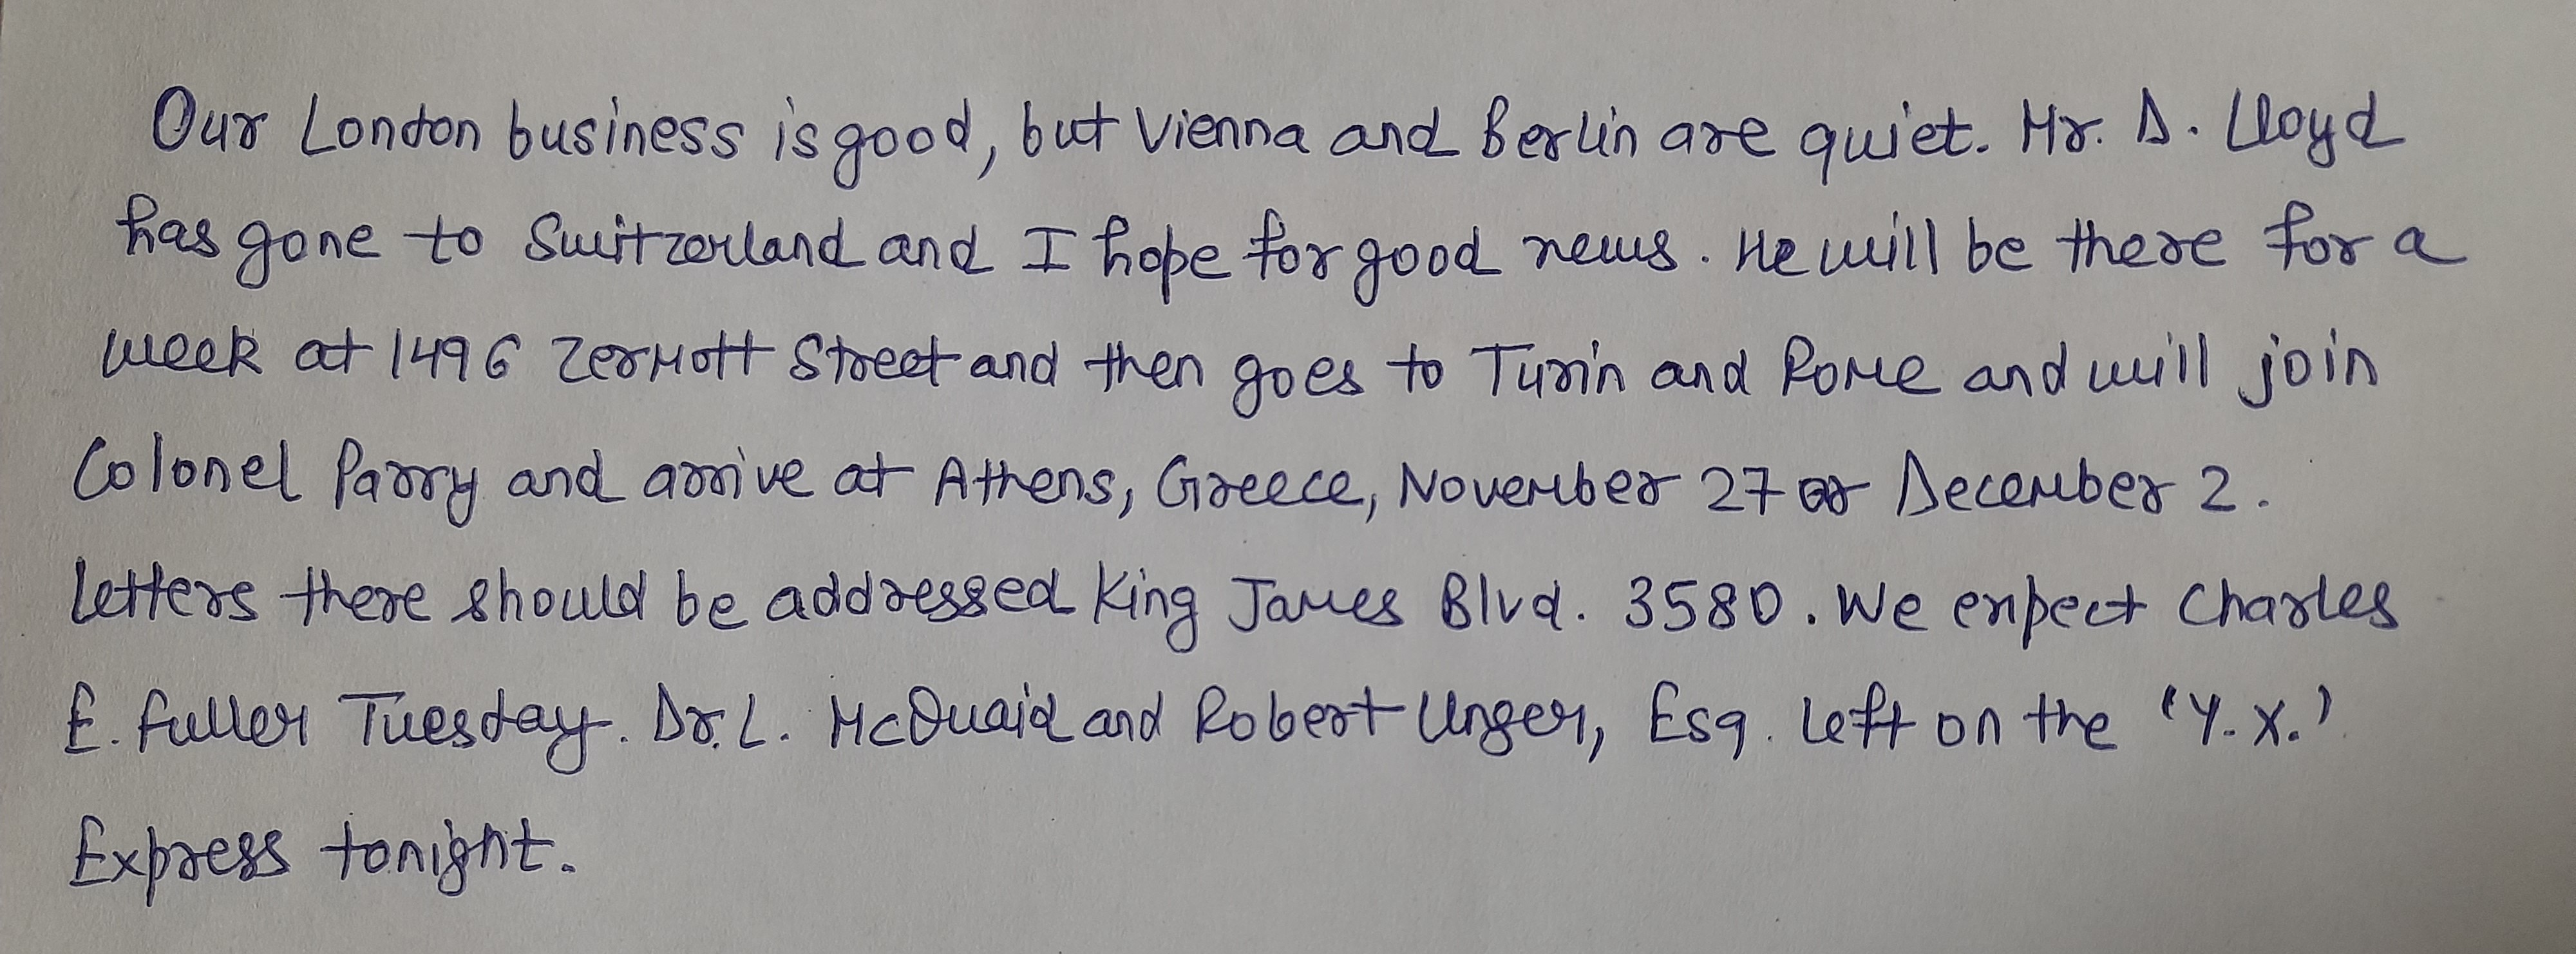 Our London business is good, but Vienna and Berlin are quiet. Mr. D. Lloyd
has gone to Switzerland and I hope for good news. He will be there for a
week at 1496 Zermott Street and then goes to Turin and Rome and will join
Colonel Parry and arrive at Athens, Greece, November 27 or December 2.
Letters there should be addressed King James Blvd. 3580. We expect Charles
E. Fuller Tuesday. Dr. L. McQuaid and Robert Unger, Esq. left on the 'Y.X.'
Express tonight.